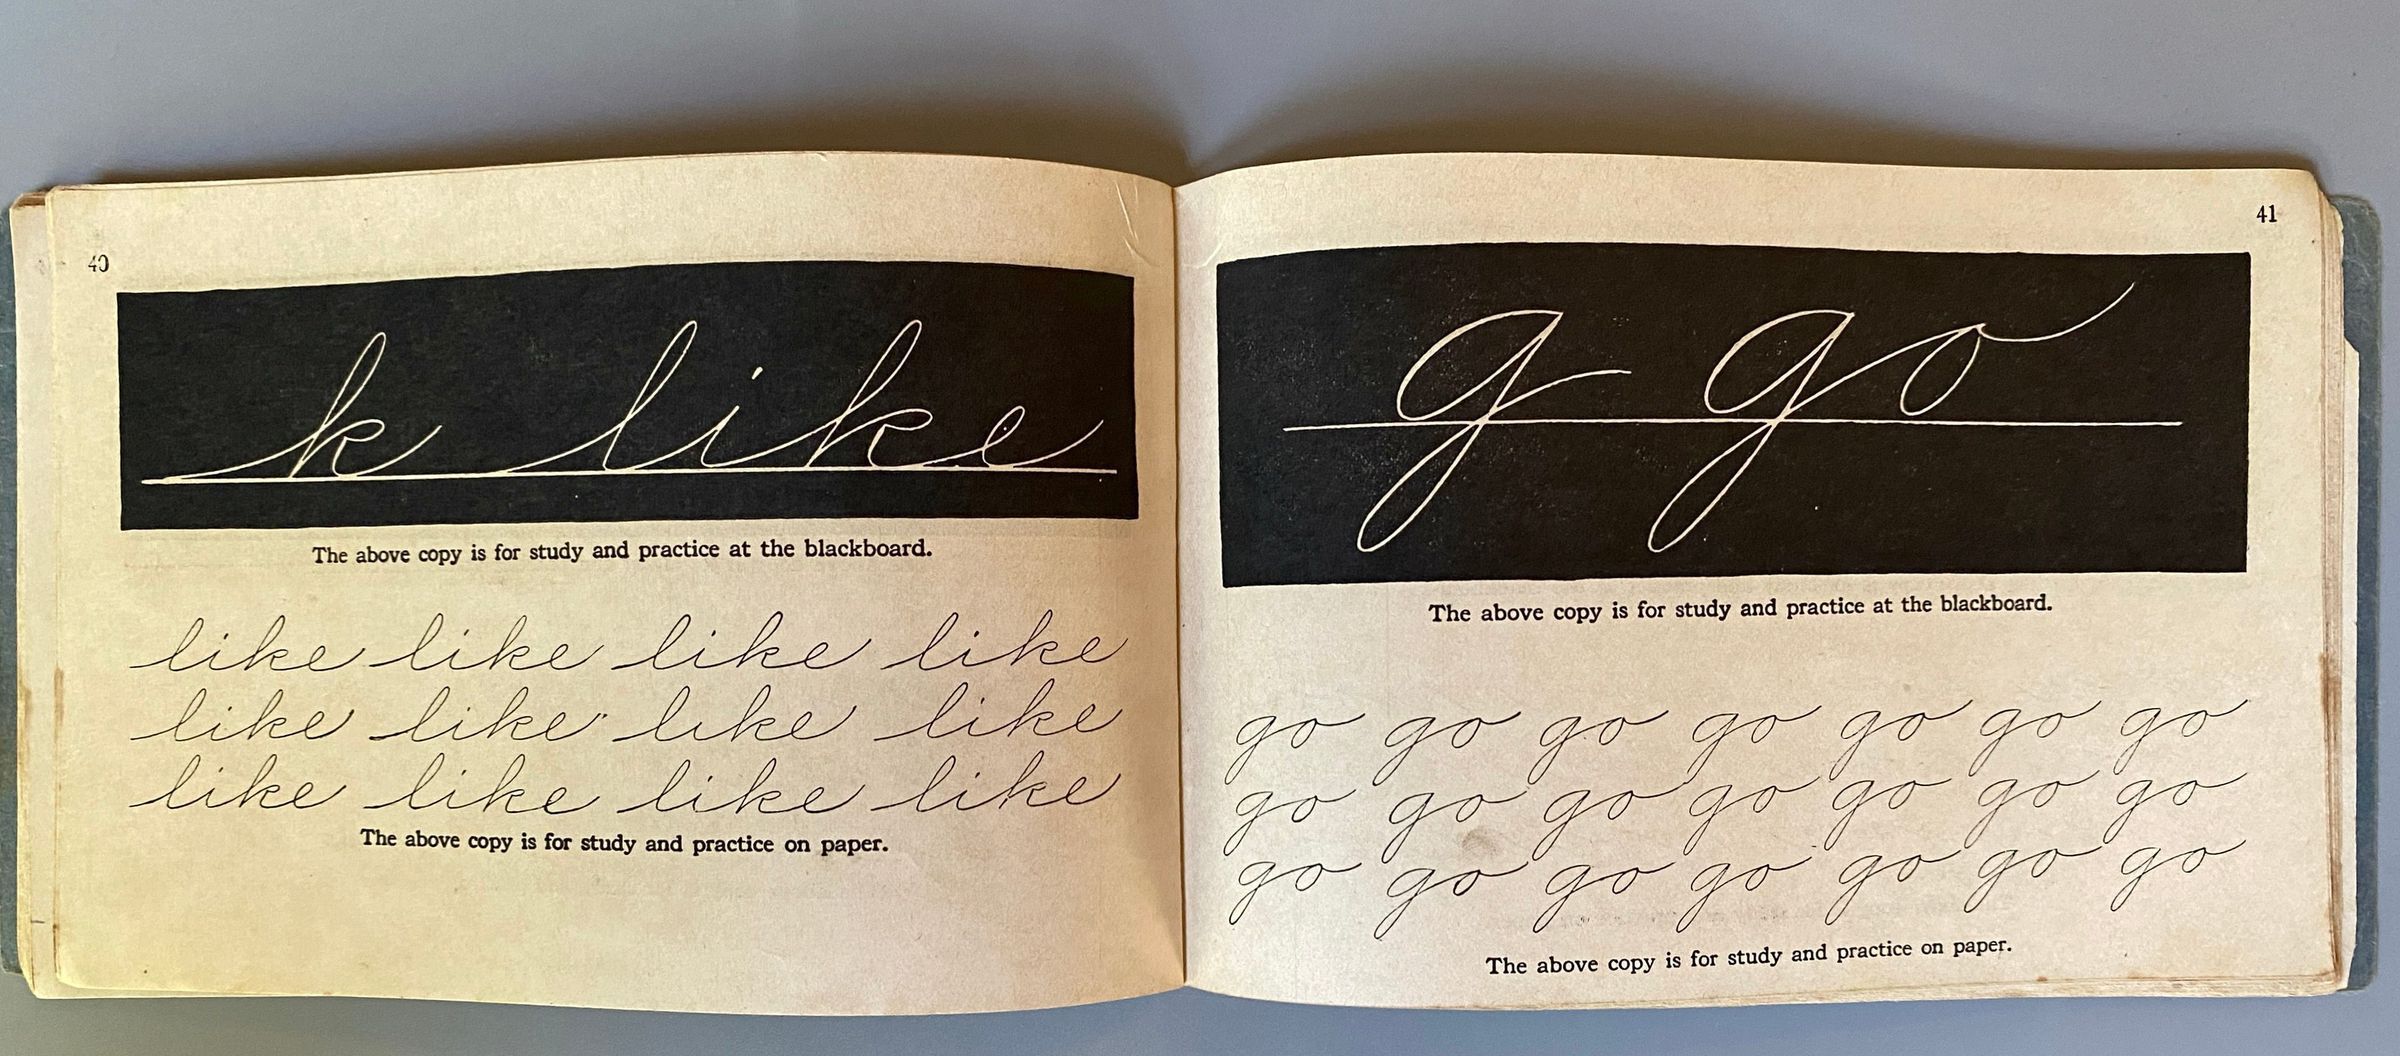 40
k like
The above copy is for study and practice at the blackboard.
like like like like
like like like like
like like like like
The above copy is for study and practice on paper.
41
g go
The above copy is for study and practice at the blackboard.
go go go go go go go
go go go go go go go
go go go go go go go
The above copy is for study and practice on paper.